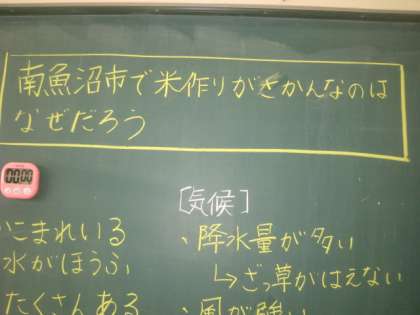 南魚沼市で米作りがさかんなのは
なぜだろう
00:00
こまれいる
水がほうふ
たくさんある
[気候]
、降水量が多い
↳ざっ草がはえない
、風が強い